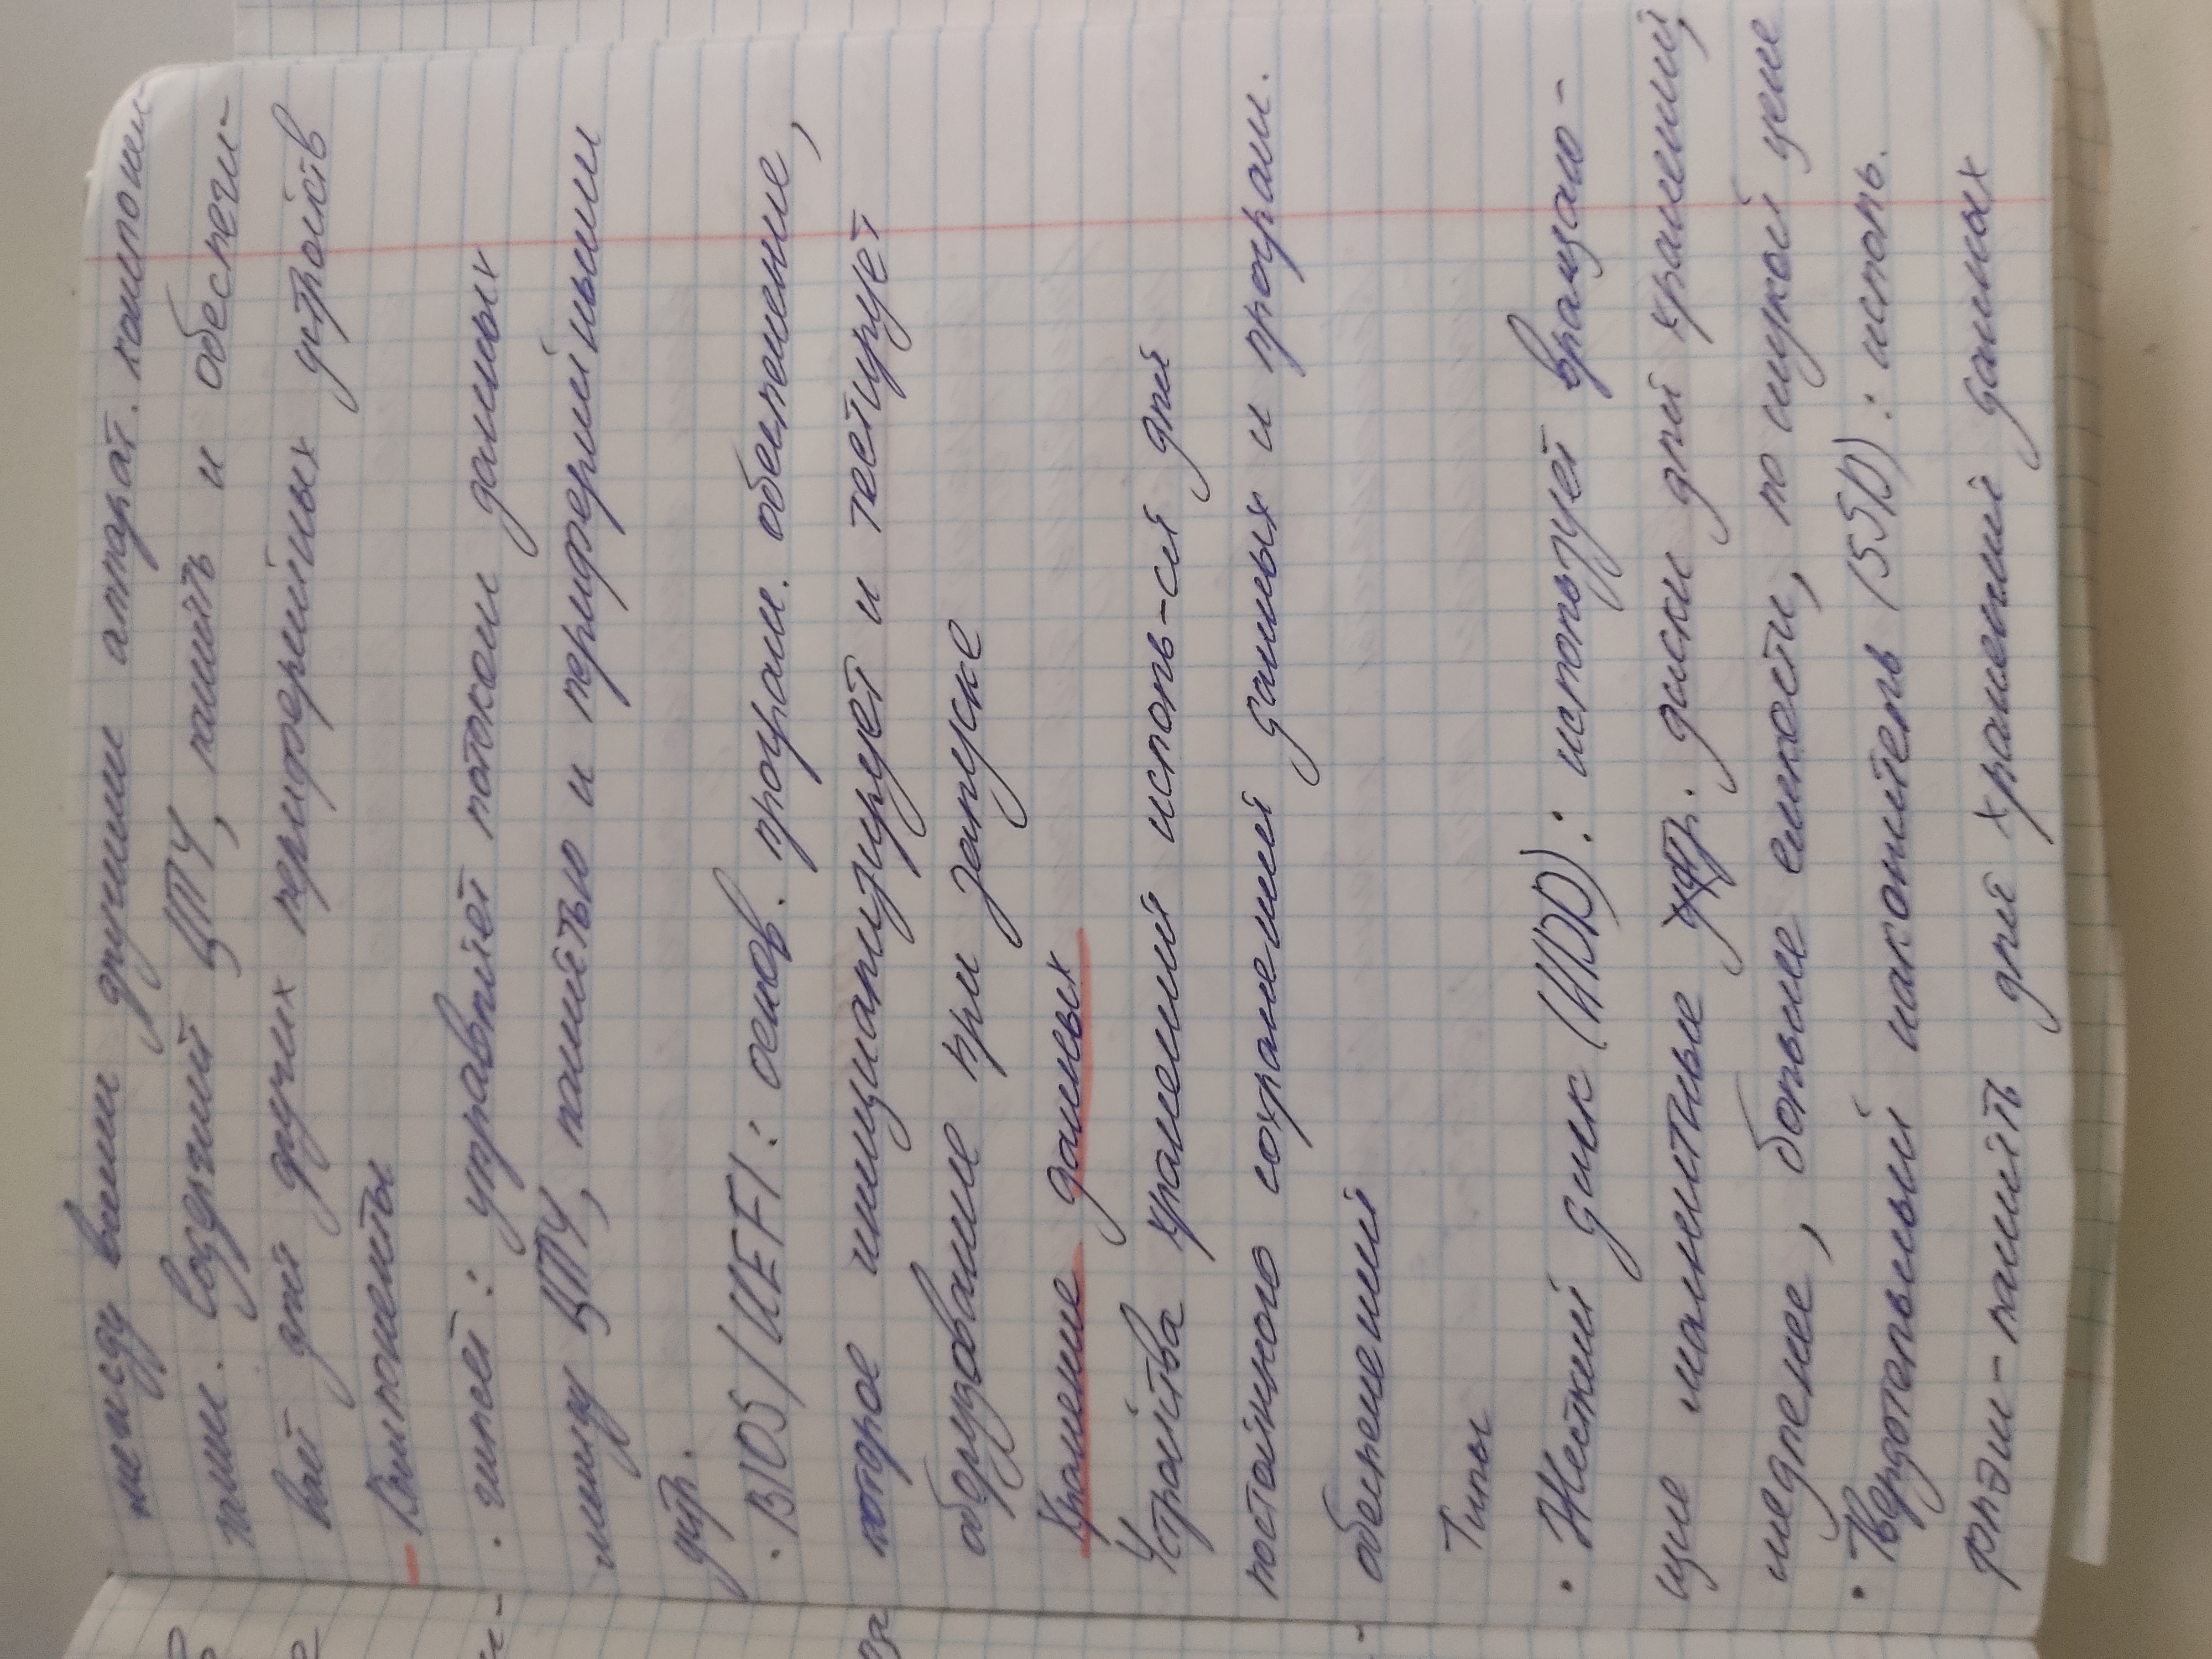 между всеми другими аппарат. компонен-
тами. Содержит ЦПУ, память и обеспечи-
вает для других периферийных устройств
Компоненты
· чипсет: управляет потоком данных
между ЦПУ, памятью и периферийными
устр.
· BIOS/UEFI: основ. програм. обеспечение,
которое инициализирует и тестирует
оборудование при запуске
Хранение данных
Устройства хранения исполь-ся для
постоянного сохранения данных и програм.
обеспечения
Типы
· Жесткий диск (HDD): использует вращаю-
щие магнитные диски для хранения,
медленее, больше емкости, по низкой цене
· Твердотельный накопитель (SSD): исполь.
флэш-память для хранения данных